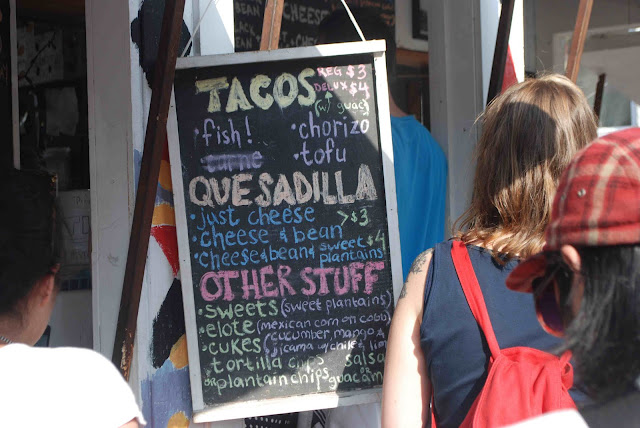 CHEESE
TACOS REG $3
DELUX $4
(w/ guac)
• fish! • chorizo
• carne • tofu
QUESADILLA
• just cheese >$3
• cheese & bean
• cheese & bean & sweet plantains $4
OTHER STUFF
• sweets (sweet plantains)
• elote (mexican corn on cobb)
• cukes (cucumber, mango & jicama w/ chile & lim
tortilla chips salsa
or plantain chips or guacam